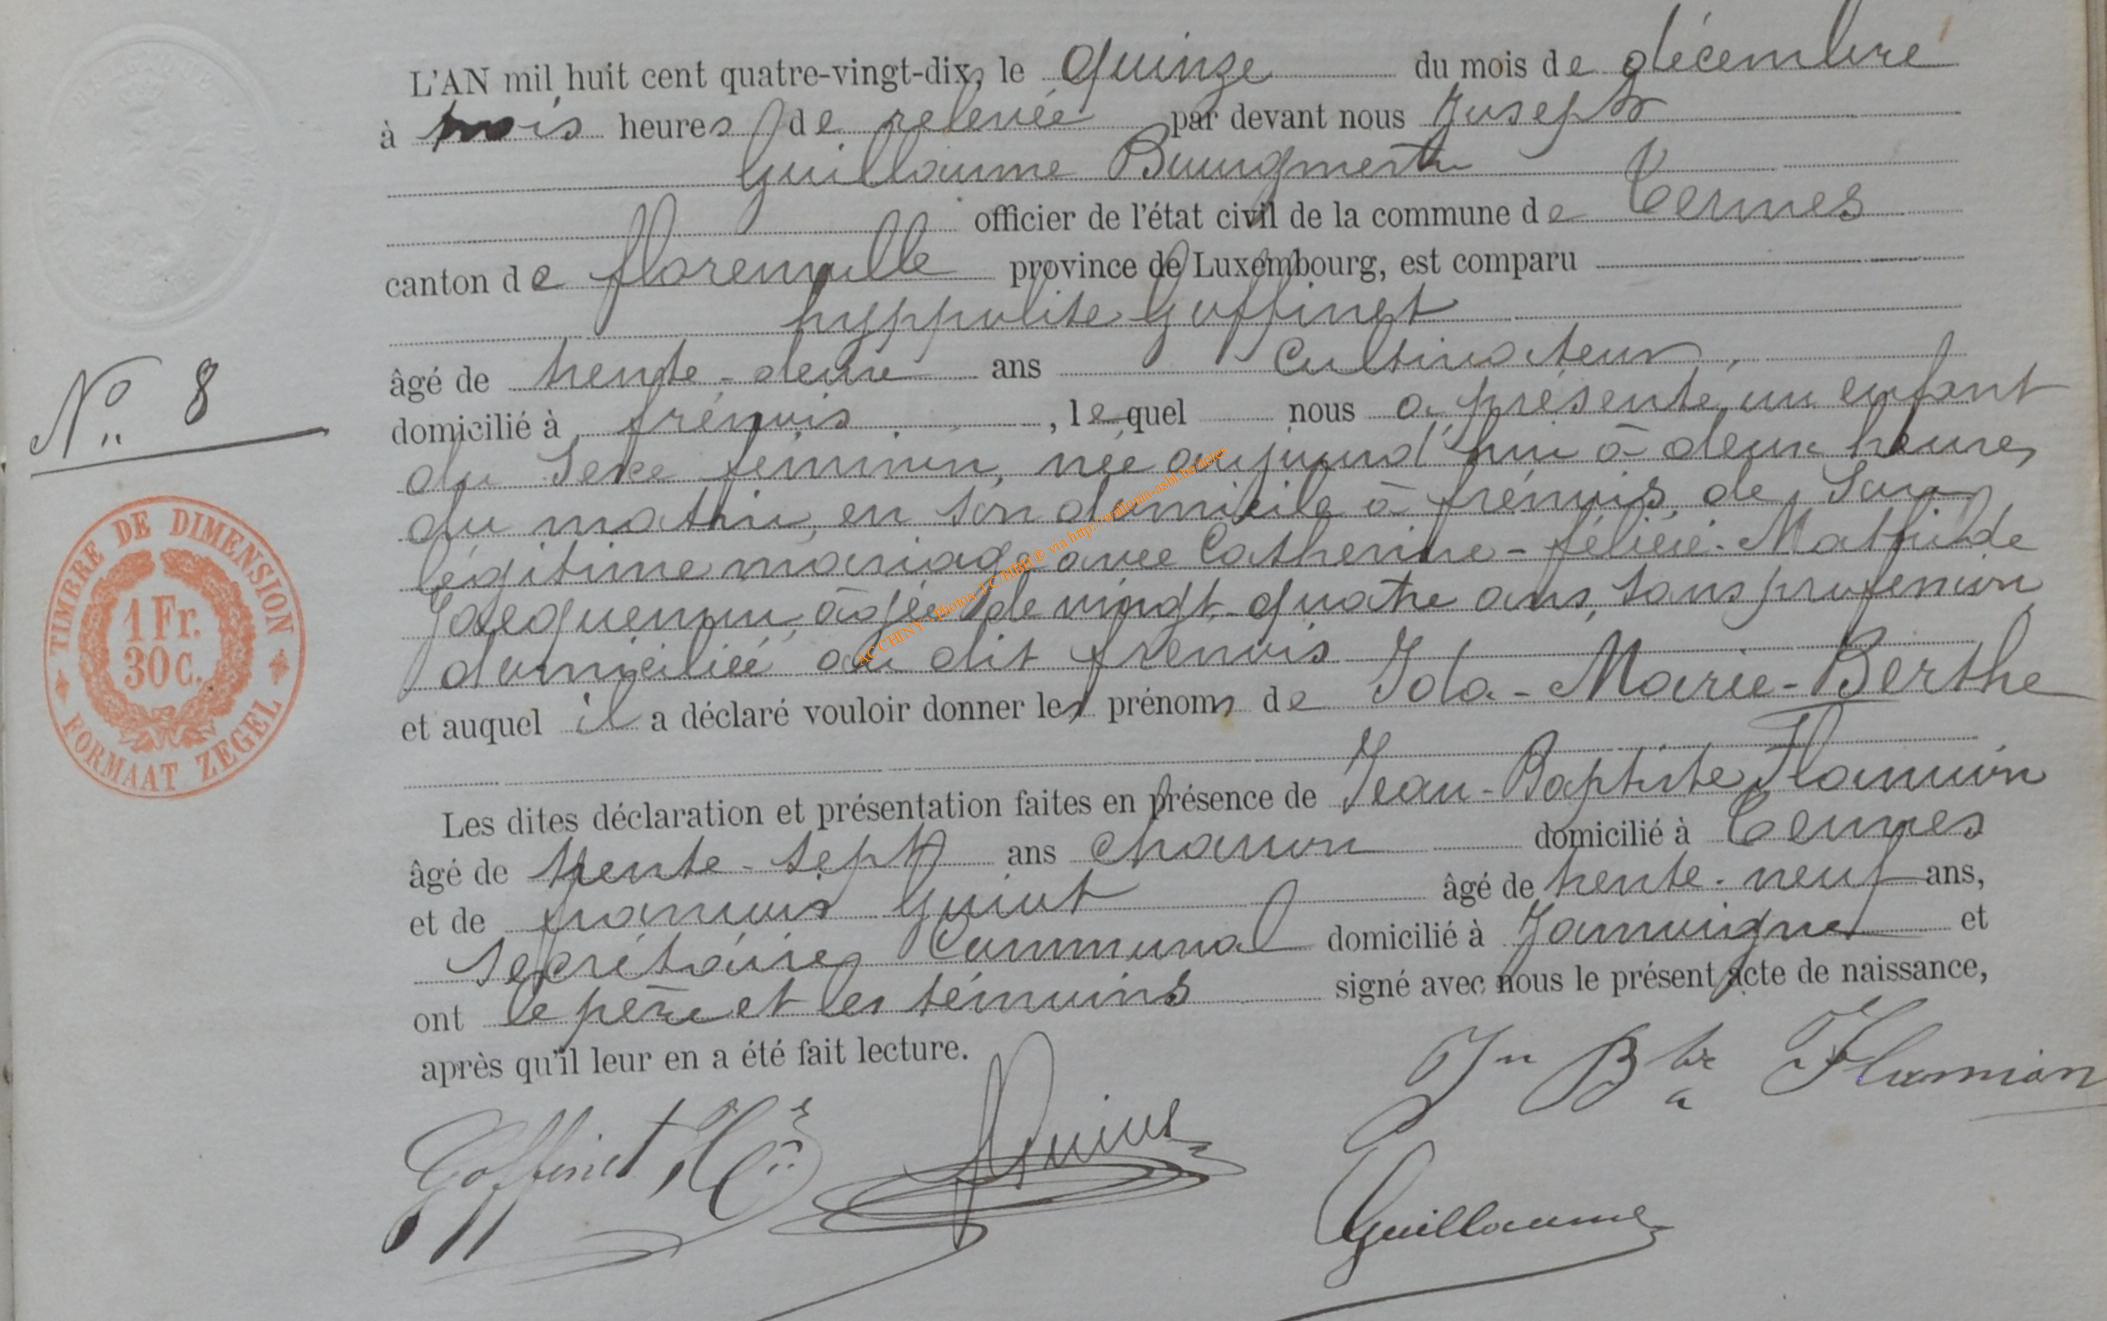 L'AN mil huit cent quatre-vingt-dix, le quinze du mois de décembre
à trois heures de relevée par devant nous Joseph
Guillaume Bourgmestre
officier de l'état civil de la commune de Termes
canton de florenville province de Luxembourg, est comparu
hyppolite Goffinet
âgé de trente-deux ans Cultivateur,
domicilié à frénois, lequel nous a présenté un enfant
du sexe féminin, née aujourd'hui à deux heures
du matin, en son domicile à frénois, de son
légitime mariage avec Catherine-félicie-Mathilde
Jacquemin, âgée de vingt-quatre ans, sans profession
domiciliée au dit frenois
et auquel il a déclaré vouloir donner les prénoms de Ida-Marie-Berthe
Les dites déclaration et présentation faites en présence de Jean-Baptiste Flamion
âgé de trente-sept ans charron domicilié à Termes
et de francois Guiot âgé de trente-neuf ans,
Secrétaire Communal domicilié à Jamoigne et
ont le père et les témoins signé avec nous le présent acte de naissance,
après qu'il leur en a été fait lecture.
Jn Bte Flamion
Goffinet, Guiot
Guillaume
No 8
TIMBRE DE DIMENSION
1 Fr.
30 C.
FORMAAT ZEGEL